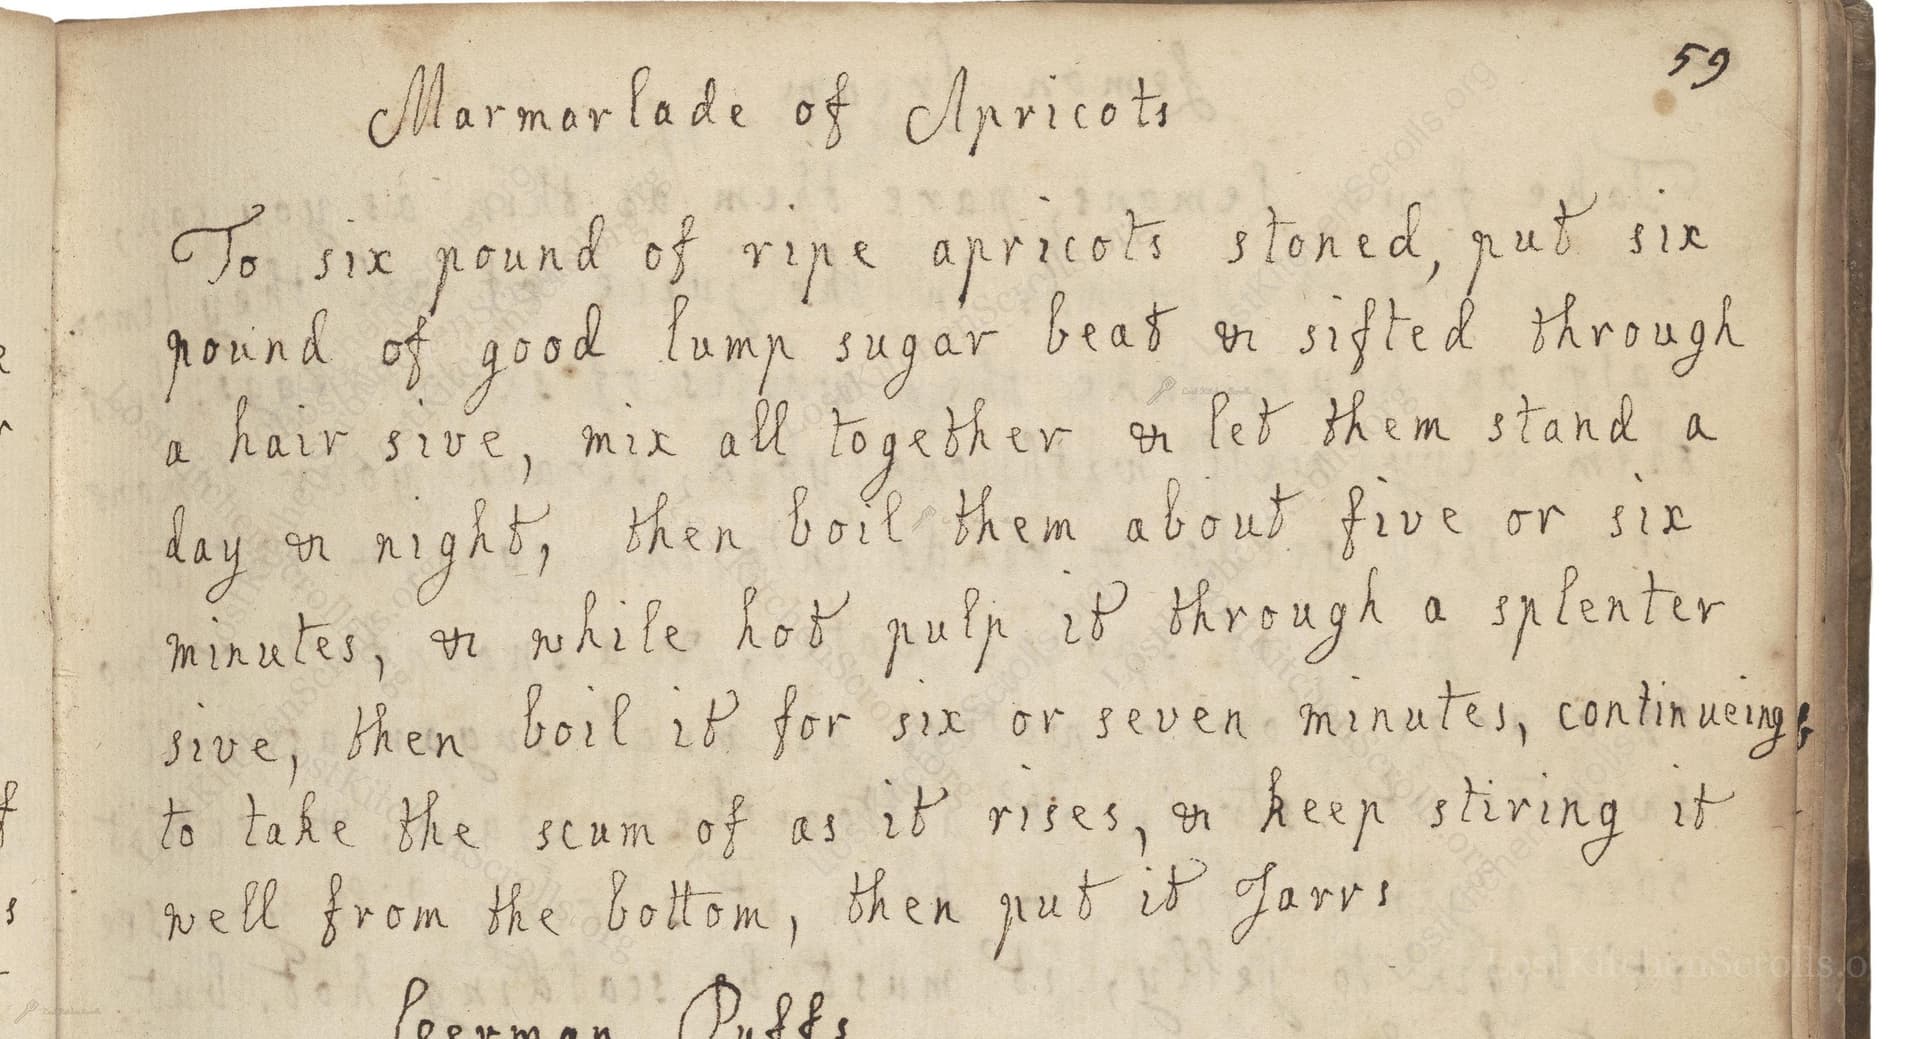 59
Marmarlade of Apricots
To six pound of ripe apricots stoned, put six
pound of good lump sugar beat & sifted through
a hair sive, mix all together & let them stand a
day & night, then boil them about five or six
minutes, & while hot pulp it through a splenter
sive, then boil it for six or seven minutes, continueing
to take the scum of as it rises, & keep stiring it
well from the bottom, then put it Jarrs
Puffs
LostKitchenScrolls.o